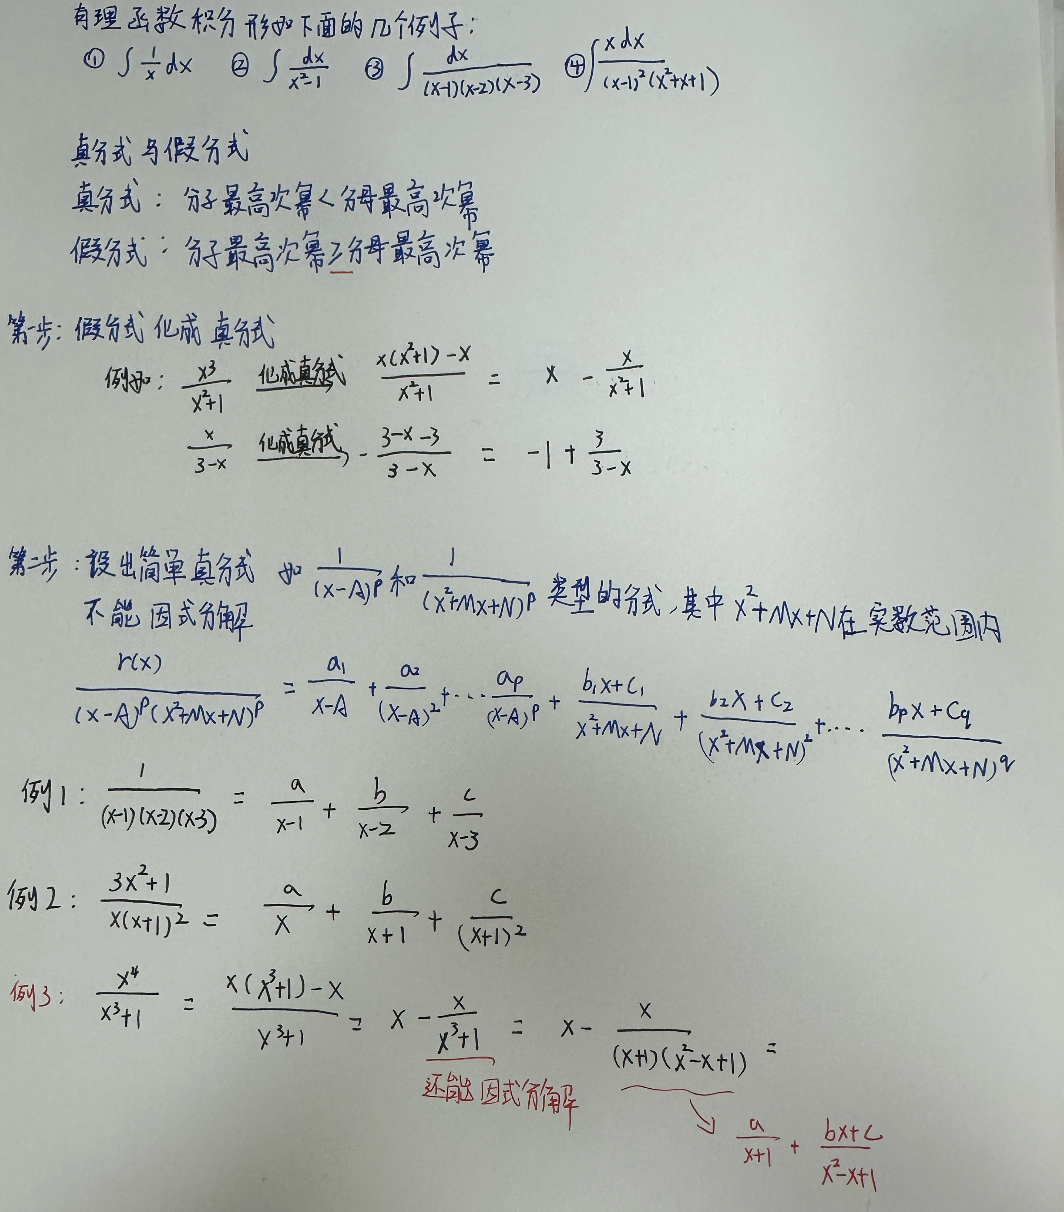 有理函数积分形如下面的几个例子:
① ∫ 1/x dx ② ∫ dx/(x²-1) ③ ∫ dx/((x-1)(x-2)(x-3)) ④ ∫ xdx/((x-1)²(x²+x+1))
真分式与假分式
真分式: 分子最高次幂<分母最高次幂
假分式: 分子最高次幂≥分母最高次幂
第一步: 假分式化成真分式
例如: x³/(x²+1) 化成真分式→ (x(x²+1)-x)/(x²+1) = x - x/(x²+1)
x/(3-x) 化成真分式→ -(3-x-3)/(3-x) = -1 + 3/(3-x)
第二步: 设出简单真分式 如 1/(x-A)^p 和 1/(x²+Mx+N)^p 类型的分式,其中 x²+Mx+N在实数范围内
不能因式分解
r(x)/((x-A)^p(x²+Mx+N)^p) = a₁/(x-A) + a₂/(x-A)² + ··· a_p/(x-A)^p + (b₁x+C₁)/(x²+Mx+N) + (b₂x+C₂)/(x²+Mx+N)² + ···· (b_px+C_q)/(x²+Mx+N)^q
例1: 1/((x-1)(x-2)(x-3)) = a/(x-1) + b/(x-2) + c/(x-3)
例2: (3x²+1)/(x(x+1)²) = a/x + b/(x+1) + c/(x+1)²
例3: x⁴/(x³+1) = (x(x³+1)-x)/(x³+1) = x - x/(x³+1) = x - x/((x+1)(x²-x+1)) =
还能因式分解
a/(x+1) + (bx+c)/(x²-x+1)